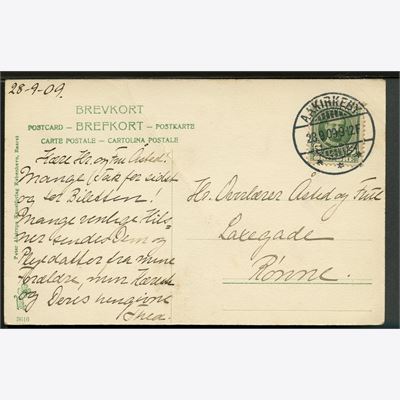 28-9-09.
BREVKORT
POSTCARD — BREFKORT — POSTKARTE
CARTE POSTALE — CARTOLINA POSTALE
AAKIRKEBY
28.9.09
Kære Hr. og Fru Åsted!
Mange Tak for sidst
og for Billetten.
Mange venlige Hil-
sner sendes Dem og
Plejedatter fra mine
Forældre, min Kæreste
og Deres hengivne
Thea.
Hr. Overlærer Åsted og Frue
Laxegade
Rønne.